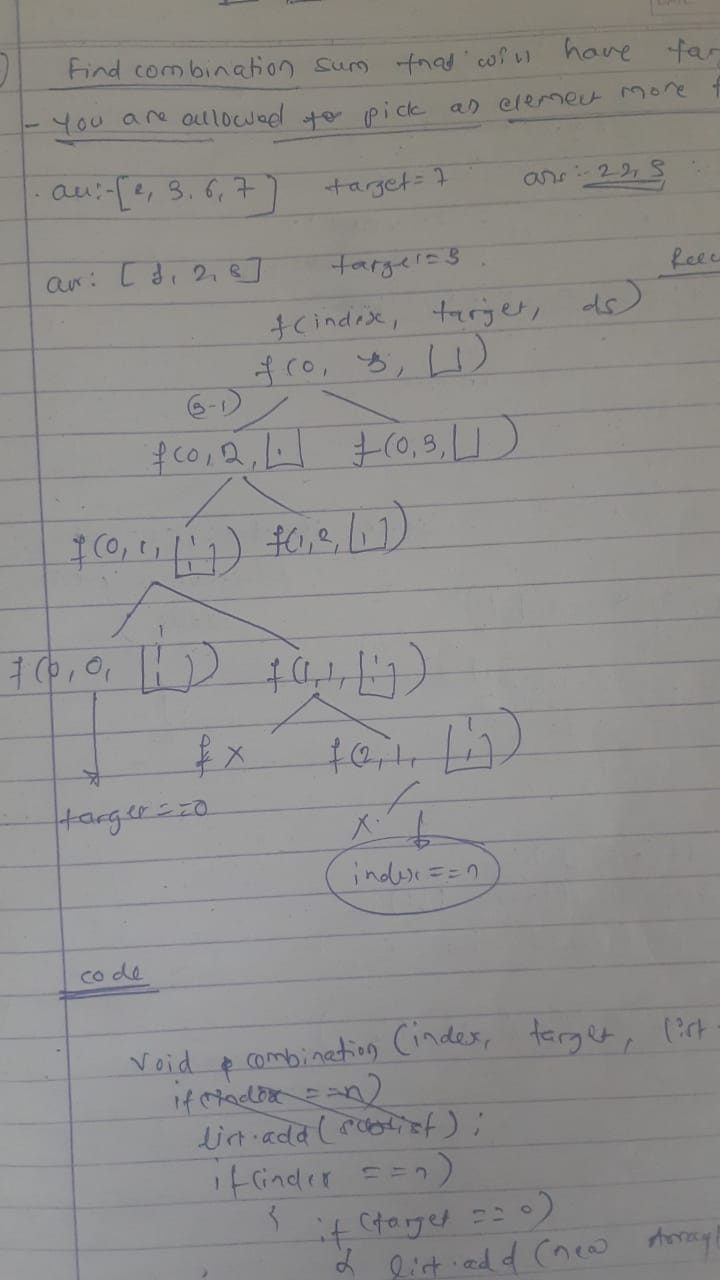 Find combination sum that will have tar
- you are allowed to pick an element more t
arr:-[2, 3, 6, 7] target=7 ans:- 2 2, 3
arr: [1, 2, 3] target=3 Recu
f(index, target, ds)
f(0, 3, [])
(3-1)
f(0, 2, [1] f(0, 3, [])
f(0, 1, [1 1]) f(1, 2, [1])
f(0, 0, [1 1 1]) f(1, 1, [1 1])
f x f(2, 1, [1 1])
target==0
x
index==n
code
void combination (index, target, list
if(index ==n)
list.add( );
if(index ==n)
{ if (target ==0)
{ list.add (new Arrayl